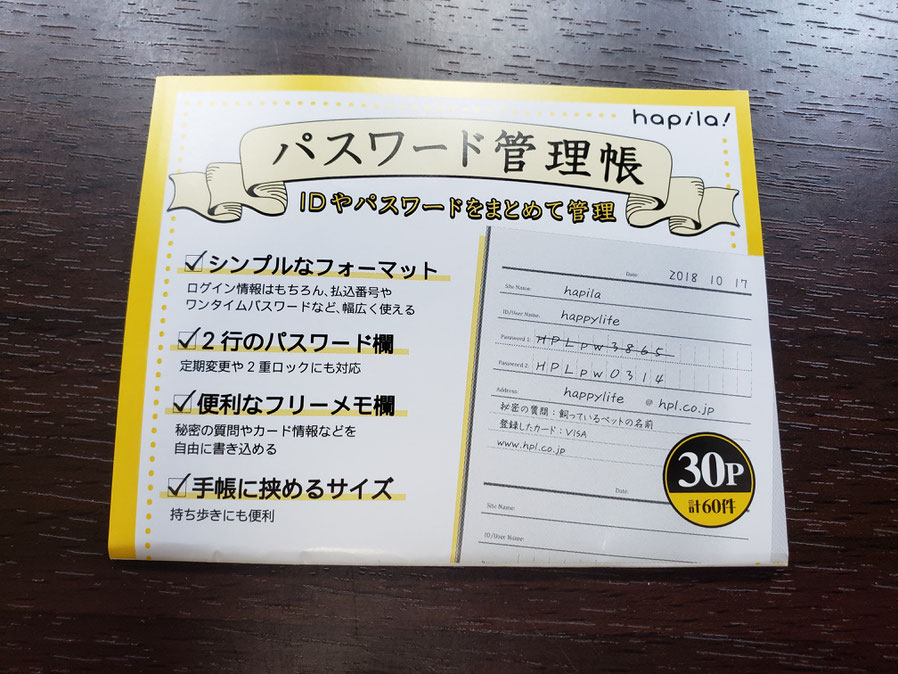 hapila!
パスワード管理帳
IDやパスワードをまとめて管理
シンプルなフォーマット
ログイン情報はもちろん、払込番号や
ワンタイムパスワードなど、幅広く使える
2行のパスワード欄
定期変更や2重ロックにも対応
便利なフリーメモ欄
秘密の質問やカード情報などを
自由に書き込める
手帳に挟めるサイズ
持ち歩きにも便利
Date: 2018 10 17
Site Name: hapila
ID/User Name: happylife
Password 1: HPLpw3865
Password 2: HPLpw0314
Address: happylife @ hpl.co.jp
秘密の質問:飼っているペットの名前
登録したカード:VISA
www.hpl.co.jp
30P
計60件
Date:
Site Name:
ID/User Name: